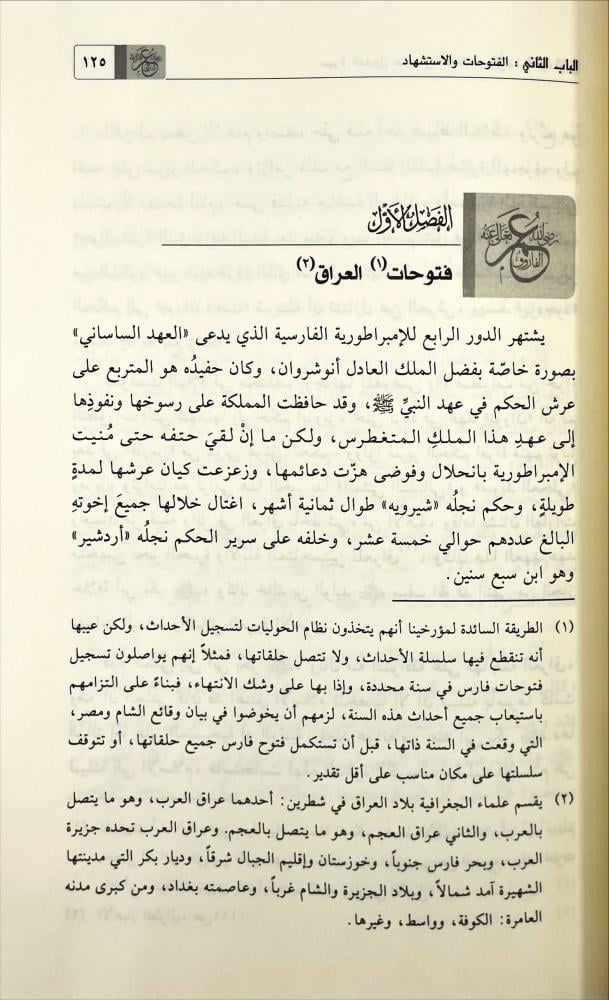 الباب الثاني : الفتوحات والاستشهاد
١٢٥
الفصل الأول
فتوحات(١) العراق(٢)
يشتهر الدور الرابع للإمبراطورية الفارسية الذي يدعى «العهد الساساني»
بصورة خاصّة بفضل الملك العادل أنوشروان، وكان حفيدُه هو المتربع على
عرش الحكم في عهد النبيِّ ﷺ، وقد حافظت المملكة على رسوخها ونفوذِها
إلى عهدِ هذا الملكِ المتغطرس، ولكن ما إنْ لقيَ حتفه حتى مُنيت
الإمبراطورية بانحلال وفوضى هزّت دعائمها، وزعزعت كيان عرشها لمدةٍ
طويلةٍ، وحكم نجلُه «شيرويه» طوال ثمانية أشهر، اغتال خلالها جميعَ إخوتهِ
البالغ عددهم حوالي خمسة عشر، وخلفه على سرير الحكم نجلُه «أردشير»
وهو ابن سبع سنين.
(١) الطريقة السائدة لمؤرخينا أنهم يتخذون نظام الحوليات لتسجيل الأحداث، ولكن عيبها
أنه تنقطع فيها سلسلة الأحداث، ولا تتصل حلقاتها، فمثلاً إنهم يواصلون تسجيل
فتوحات فارس في سنة محددة، وإذا بها على وشك الانتهاء، فبناءً على التزامهم
باستيعاب جميع أحداث هذه السنة، لزمهم أن يخوضوا في بيان وقائع الشام ومصر،
التي وقعت في السنة ذاتها، قبل أن تستكمل فتوح فارس جميع حلقاتها، أو تتوقف
سلسلتها على مكان مناسب على أقل تقدير.
(٢) يقسم علماء الجغرافية بلاد العراق في شطرين: أحدهما عراق العرب، وهو ما يتصل
بالعرب، والثاني عراق العجم، وهو ما يتصل بالعجم. وعراق العرب تحده جزيرة
العرب، وبحر فارس جنوباً، وخوزستان وإقليم الجبال شرقاً، وديار بكر التي مدينتها
الشهيرة آمد شمالاً، وبلاد الجزيرة والشام غرباً، وعاصمته بغداد، ومن كبرى مدنه
العامرة: الكوفة، وواسط، وغيرها.